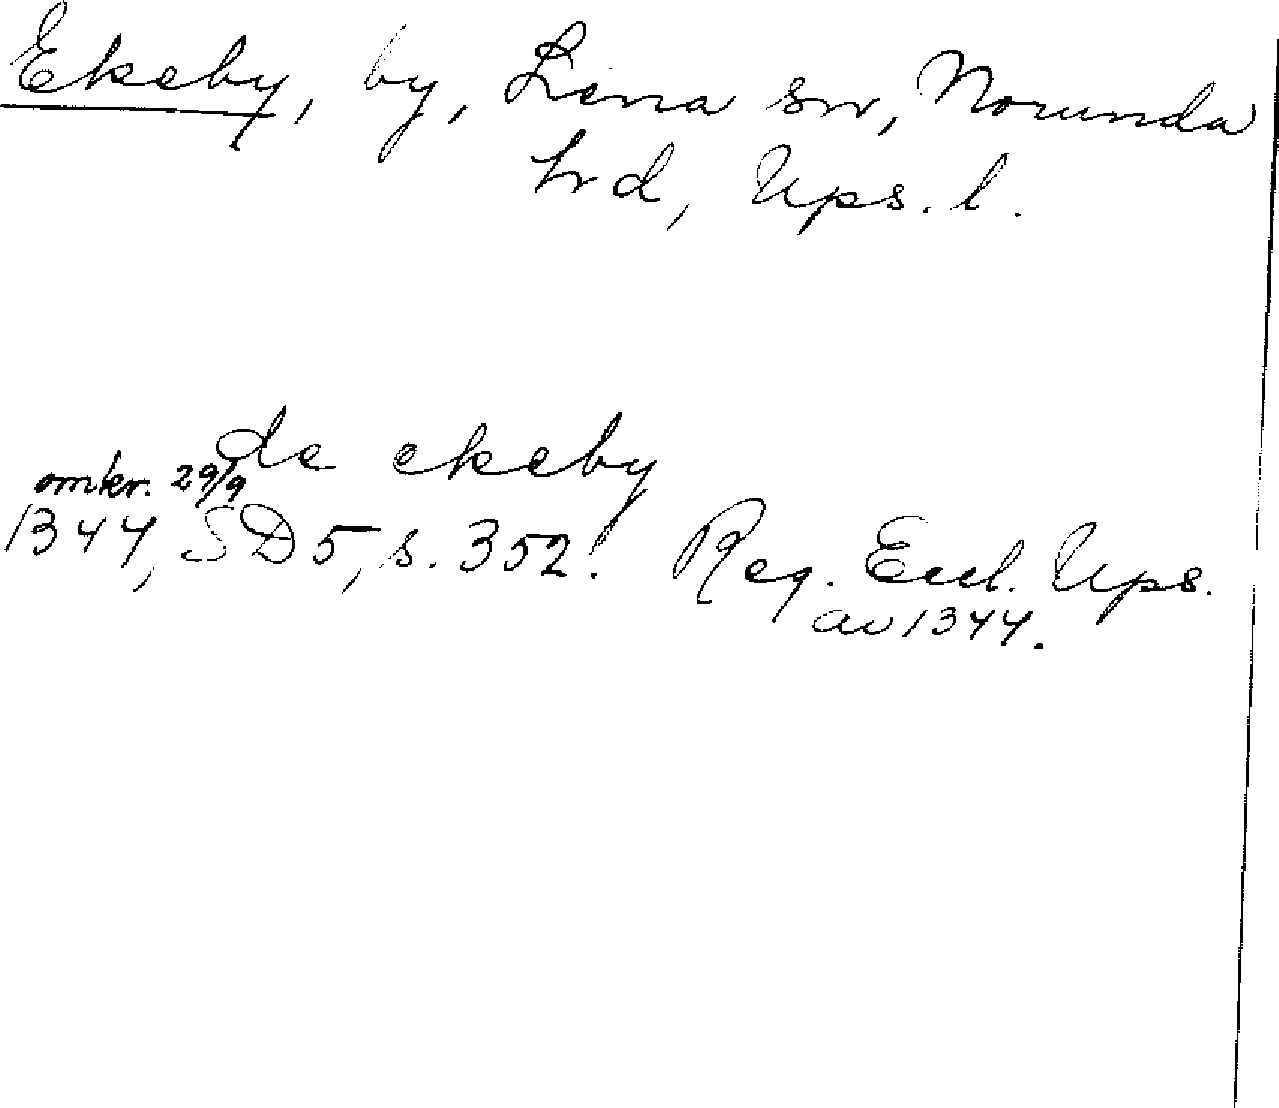 Ekeby, by, Lena sn, Norunda
hd, Ups. l.
de ekeby
omkr. 29/9
1344, SD 5, s. 352. Reg. Eccl. Ups.
av 1344.